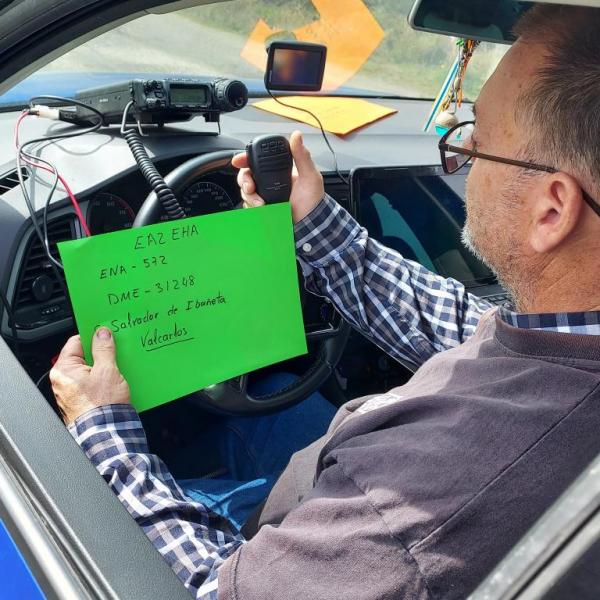 EA2 EHA
ENA - 572
DME - 31248
S. Salvador de Ibañeta
Valcarlos